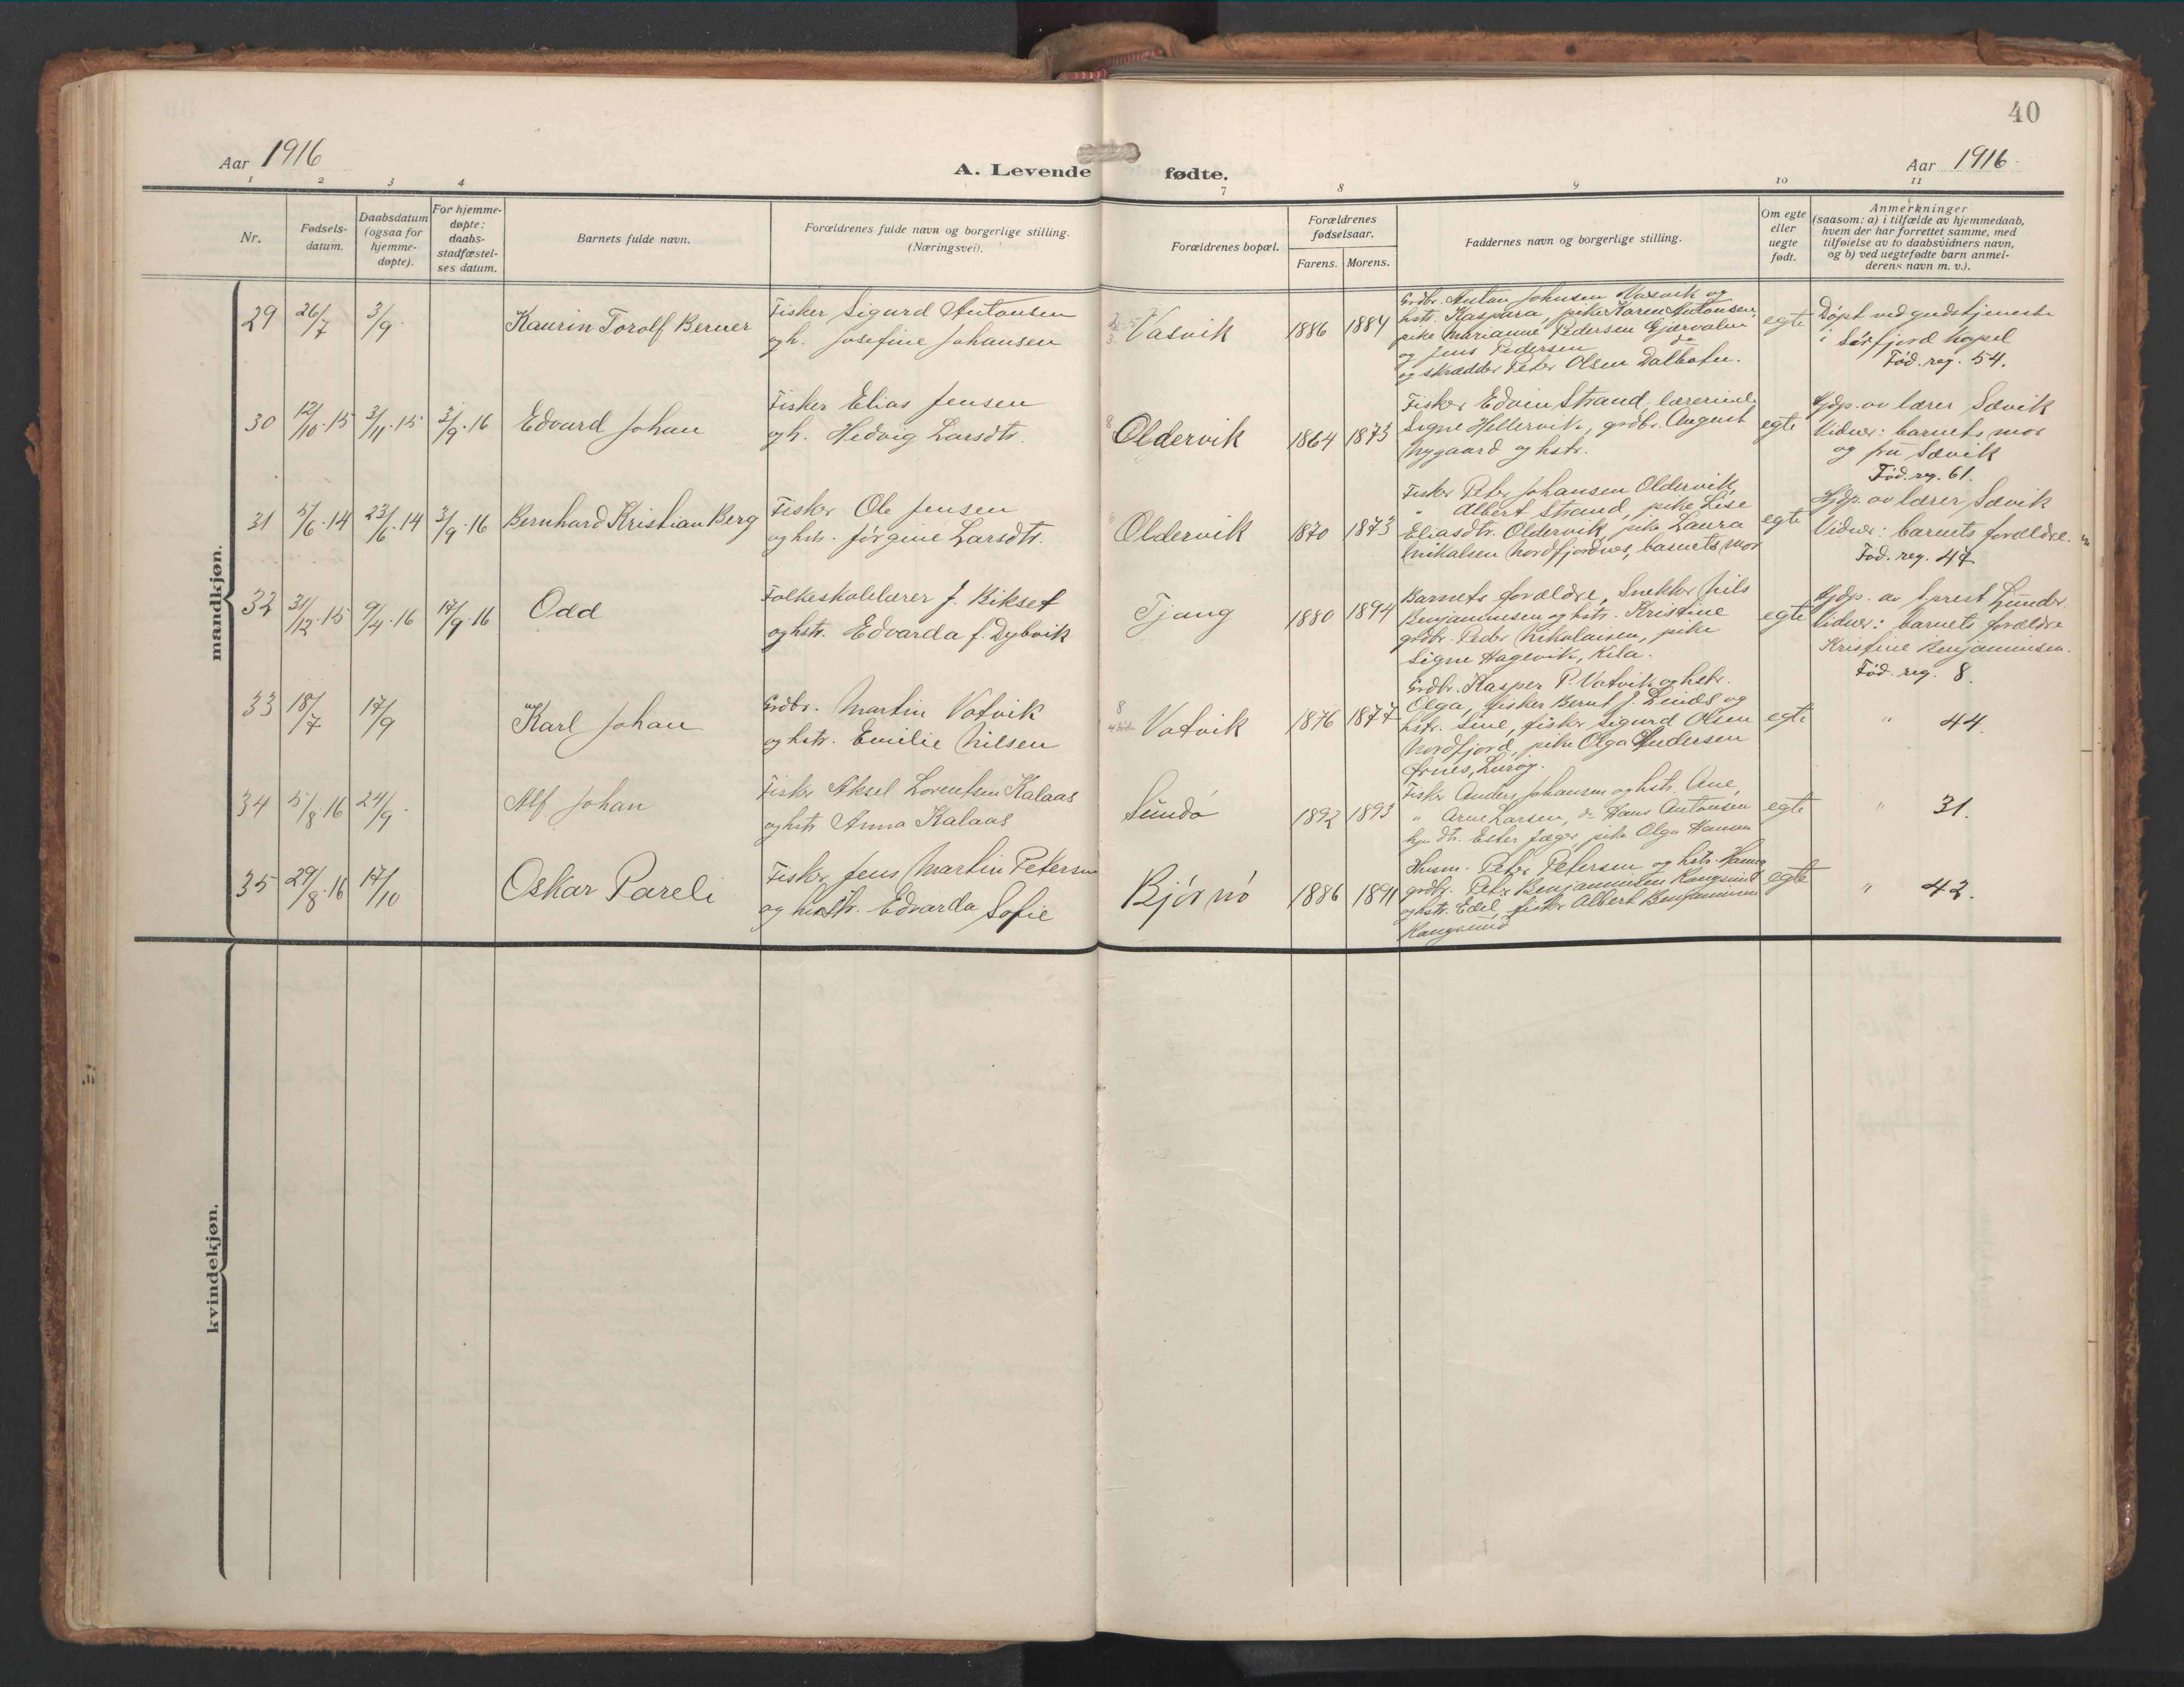 40
Aar 1916
A. Levende fødte.
Aar 1916
1 2 3 4 7 8 9 10 11
Nr.
Fødsels-
datum.
Daabsdatum
(ogsaa for
hjemme-
døpte).
For hjemme-
døpte:
daabs-
stadfæstel-
ses datum.
Barnets fulde navn.
Forældrenes fulde navn og borgerlige stilling.
(Næringsvei).
Forældrenes bopæl.
Forældrenes
fødselsaar.
Farens. Morens.
Faddernes navn og borgerlige stilling.
Om egte
eller
uegte
født.
Anmerkninger
(saasom: a) i tilfælde av hjemmedaab,
hvem der har forrettet samme, med
tilføielse av to daabsvidners navn,
og b) ved uegtefødte barn anmel-
derens navn m. v.).
mandkjøn.
29 26/7 3/9 Kaurin Torolf Berner
Fisker Sigurd Antonsen
og h. Josefine Johansen
Vasvik 1886 1884
Grdbr. Anton Johnsen Vasvik og
hstr. Kaspara, pike Karen Antonsen,
pike Marianne Pedersen Gjærvalen
og Jens Pedersen do
og skrædder Peder Olsen Dalbotn.
egte
Døpt ved gudstjeneste
i Sørfjord kapel
Fød. reg. 54.
30 12/10.15 3/11.15 3/9.16 Edvard Johan
Fisker Elias Jensen
og h. Hedvig Larsdtr.
8
Oldervik 1864 1873
Fisker Edvin Strand, lærerinde
Signe Hellervik, grdbr. August
Nygaard og hstr.
egte
Hjdp. av lærer Sævik
Vidner: barnets mor
og fru Sævik
Fød. reg. 61.
31 5/6.14 23/6.14 3/9.16 Bernhard Kristian Berg
Fisker Ole Jensen
og hstr. Jørgine Larsdtr.
Oldervik 1870 1873
Fisker Peter Johansen Oldervik,
" Albert Strand, pike Lise
Eliasdtr. Oldervik, pike Laura
Mikalsen Nordfjordnes, barnets mor
egte
Hjdp. av lærer Sævik
Vidner: barnets forældre.
Fød. reg. 47
32 31/12.15 9/4.16 17/9.16 Odd
Folkeskolelærer J. Rikset
og hstr. Edvarda f. Dybvik
Tjong 1880 1894
Barnets forældre, Snekker Nils
Benjaminsen og hstr. Kristine
grdbr. Peder Nikolaisen, pike
Signe Hagevik, Kila.
egte
Hjdp. av sprest Lunder.
Vidner: barnets forældre
Kristine Benjaminsen.
Fød. reg. 8.
33 18/7 17/9 Karl Johan
Grdbr. Martin Votvik
og hstr. Emilie Nilsen
8
Votvik 1876 1877
Grdbr. Kasper P. Votvik og hstr.
Olga, fisker Bernt J. Linds og
hstr. Sine, fisker Sigurd Olsen
Nordfjord, pike Olga Andersen
Ørnes, Lurøy.
egte
" 44.
34 5/8 16 24/9 Alf Johan
Fisker Aksel Lorentsen Kalaas
og hstr Anna Kalaas
Sundø 1892 1893
Fisker Anders Johansen og hstr. Ane,
" Arne Larsen, do Hans Antonsen
dtr. Ester Jæger, pike Olga Hansen
egte
" 31.
35 29/8.16 17/10 Oskar Pareli
Fisker Jens Martin Petersen
og hustr. Edvarda Sofie
Bjørnø 1886 1891
Husm. Peter Petersen og hstr. Hanna
grdbr. Peder Benjaminsen Rangsund
og hstr. Edel, fisker Albert Benjaminsen
Rangsund
egte
" 42.
kvindekjøn.